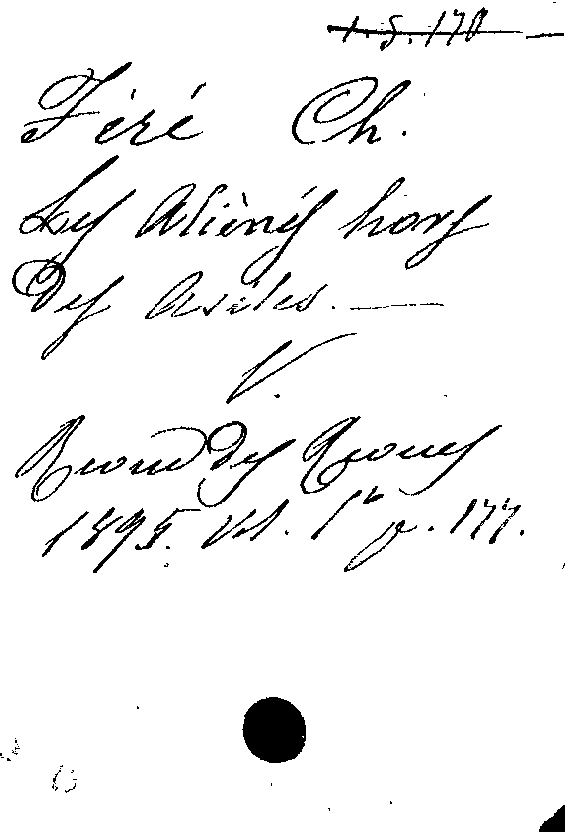 1.5.170 —
Féré Ch.
Les Aliénés hors
des asiles. —
V.
Revue des Revues
1895. Vol. 1er p. 177.